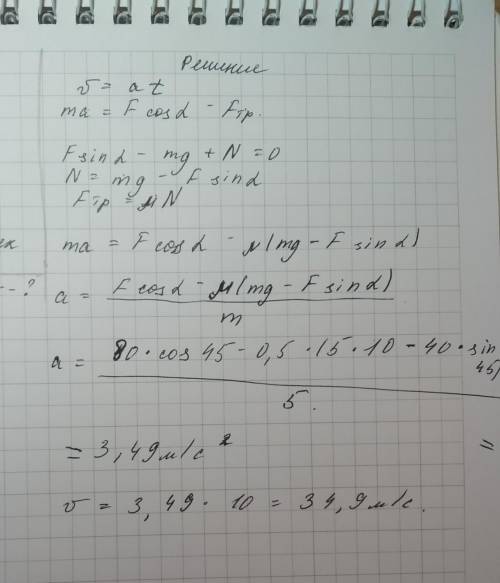 Решение
v = at
ma = F cosα - Fтр.
F sinα - mg + N = 0
N = mg - F sinα
Fтр = μN
ma = F cosα - μ(mg - F sinα)
--?
a = F cosα - μ(mg - F sinα)
m
a = 80 · cos 45 - 0,5 · 15 · 10 - 40 · sin
45)
5.
= 3,49 м/с²
=
v = 3,49 · 10 = 34,9 м/с.